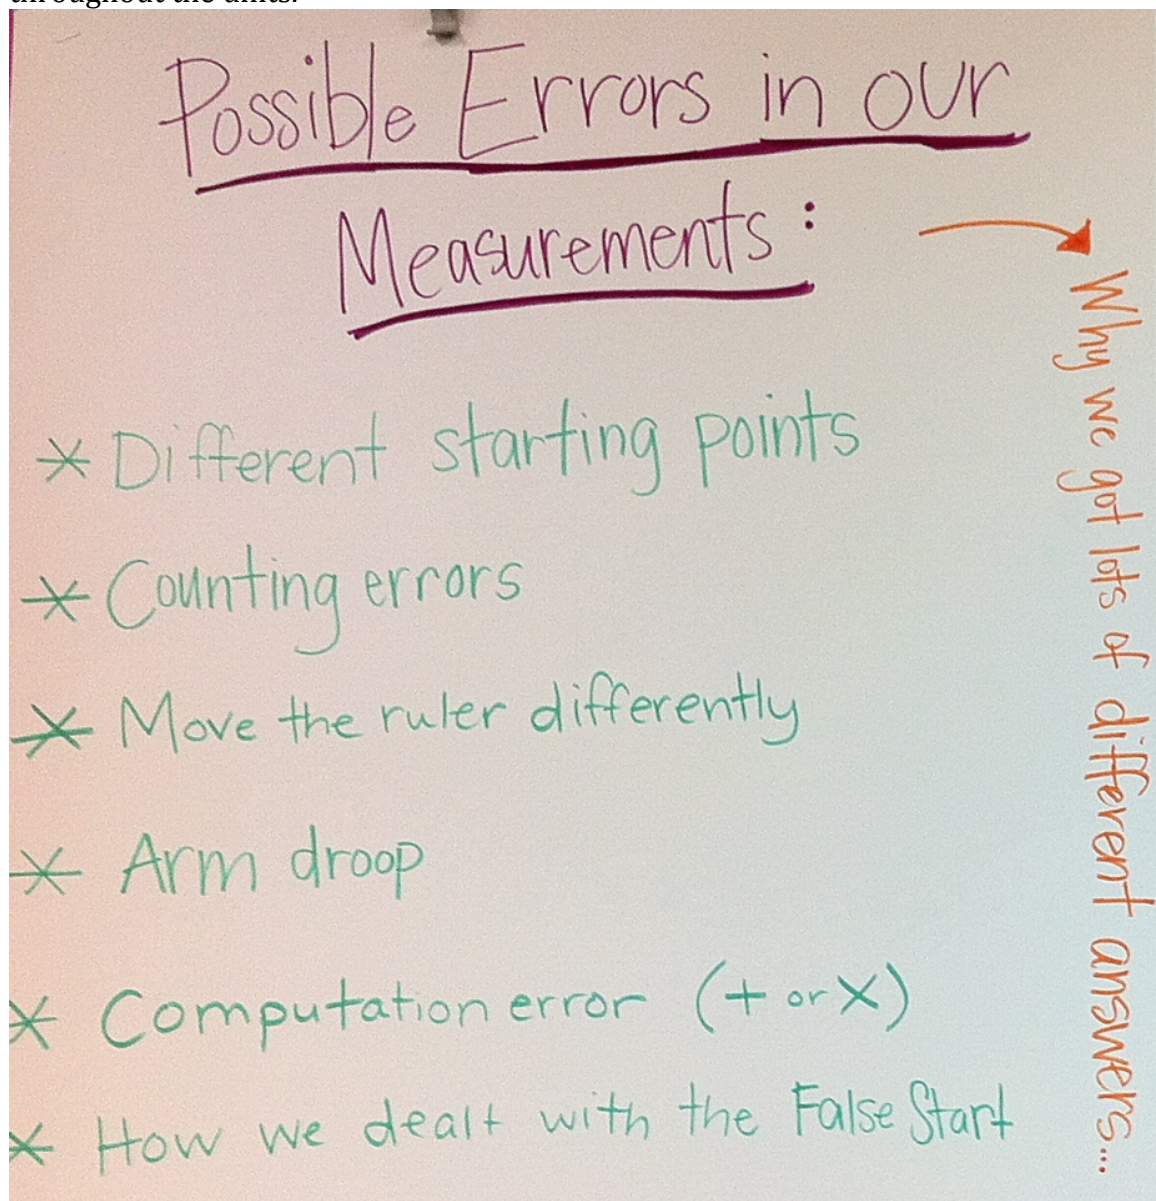 throughout the units.
Possible Errors in our
Measurements:
Why we got lots of different answers...
* Different starting points
* Counting errors
* Move the ruler differently
* Arm droop
* Computation error (+ or X)
* How we dealt with the False Start